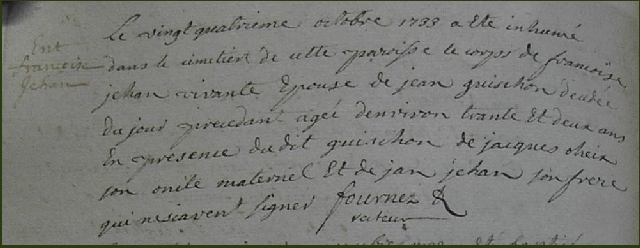 Ent
francoise
Jehan
Le vingt quatrieme octobre 1733 a ete inhumé
dans le cimetiere de cette paroisse le corps de francoise
jehan vivante Epouse de jean guischon decedée
du jour precedant ageé denviron trante Et deux ans
En presence dudit guischon de jacques oheix
son oncle maternel Et de jan jehan son frere
qui ne scavent signer fournez R
recteur